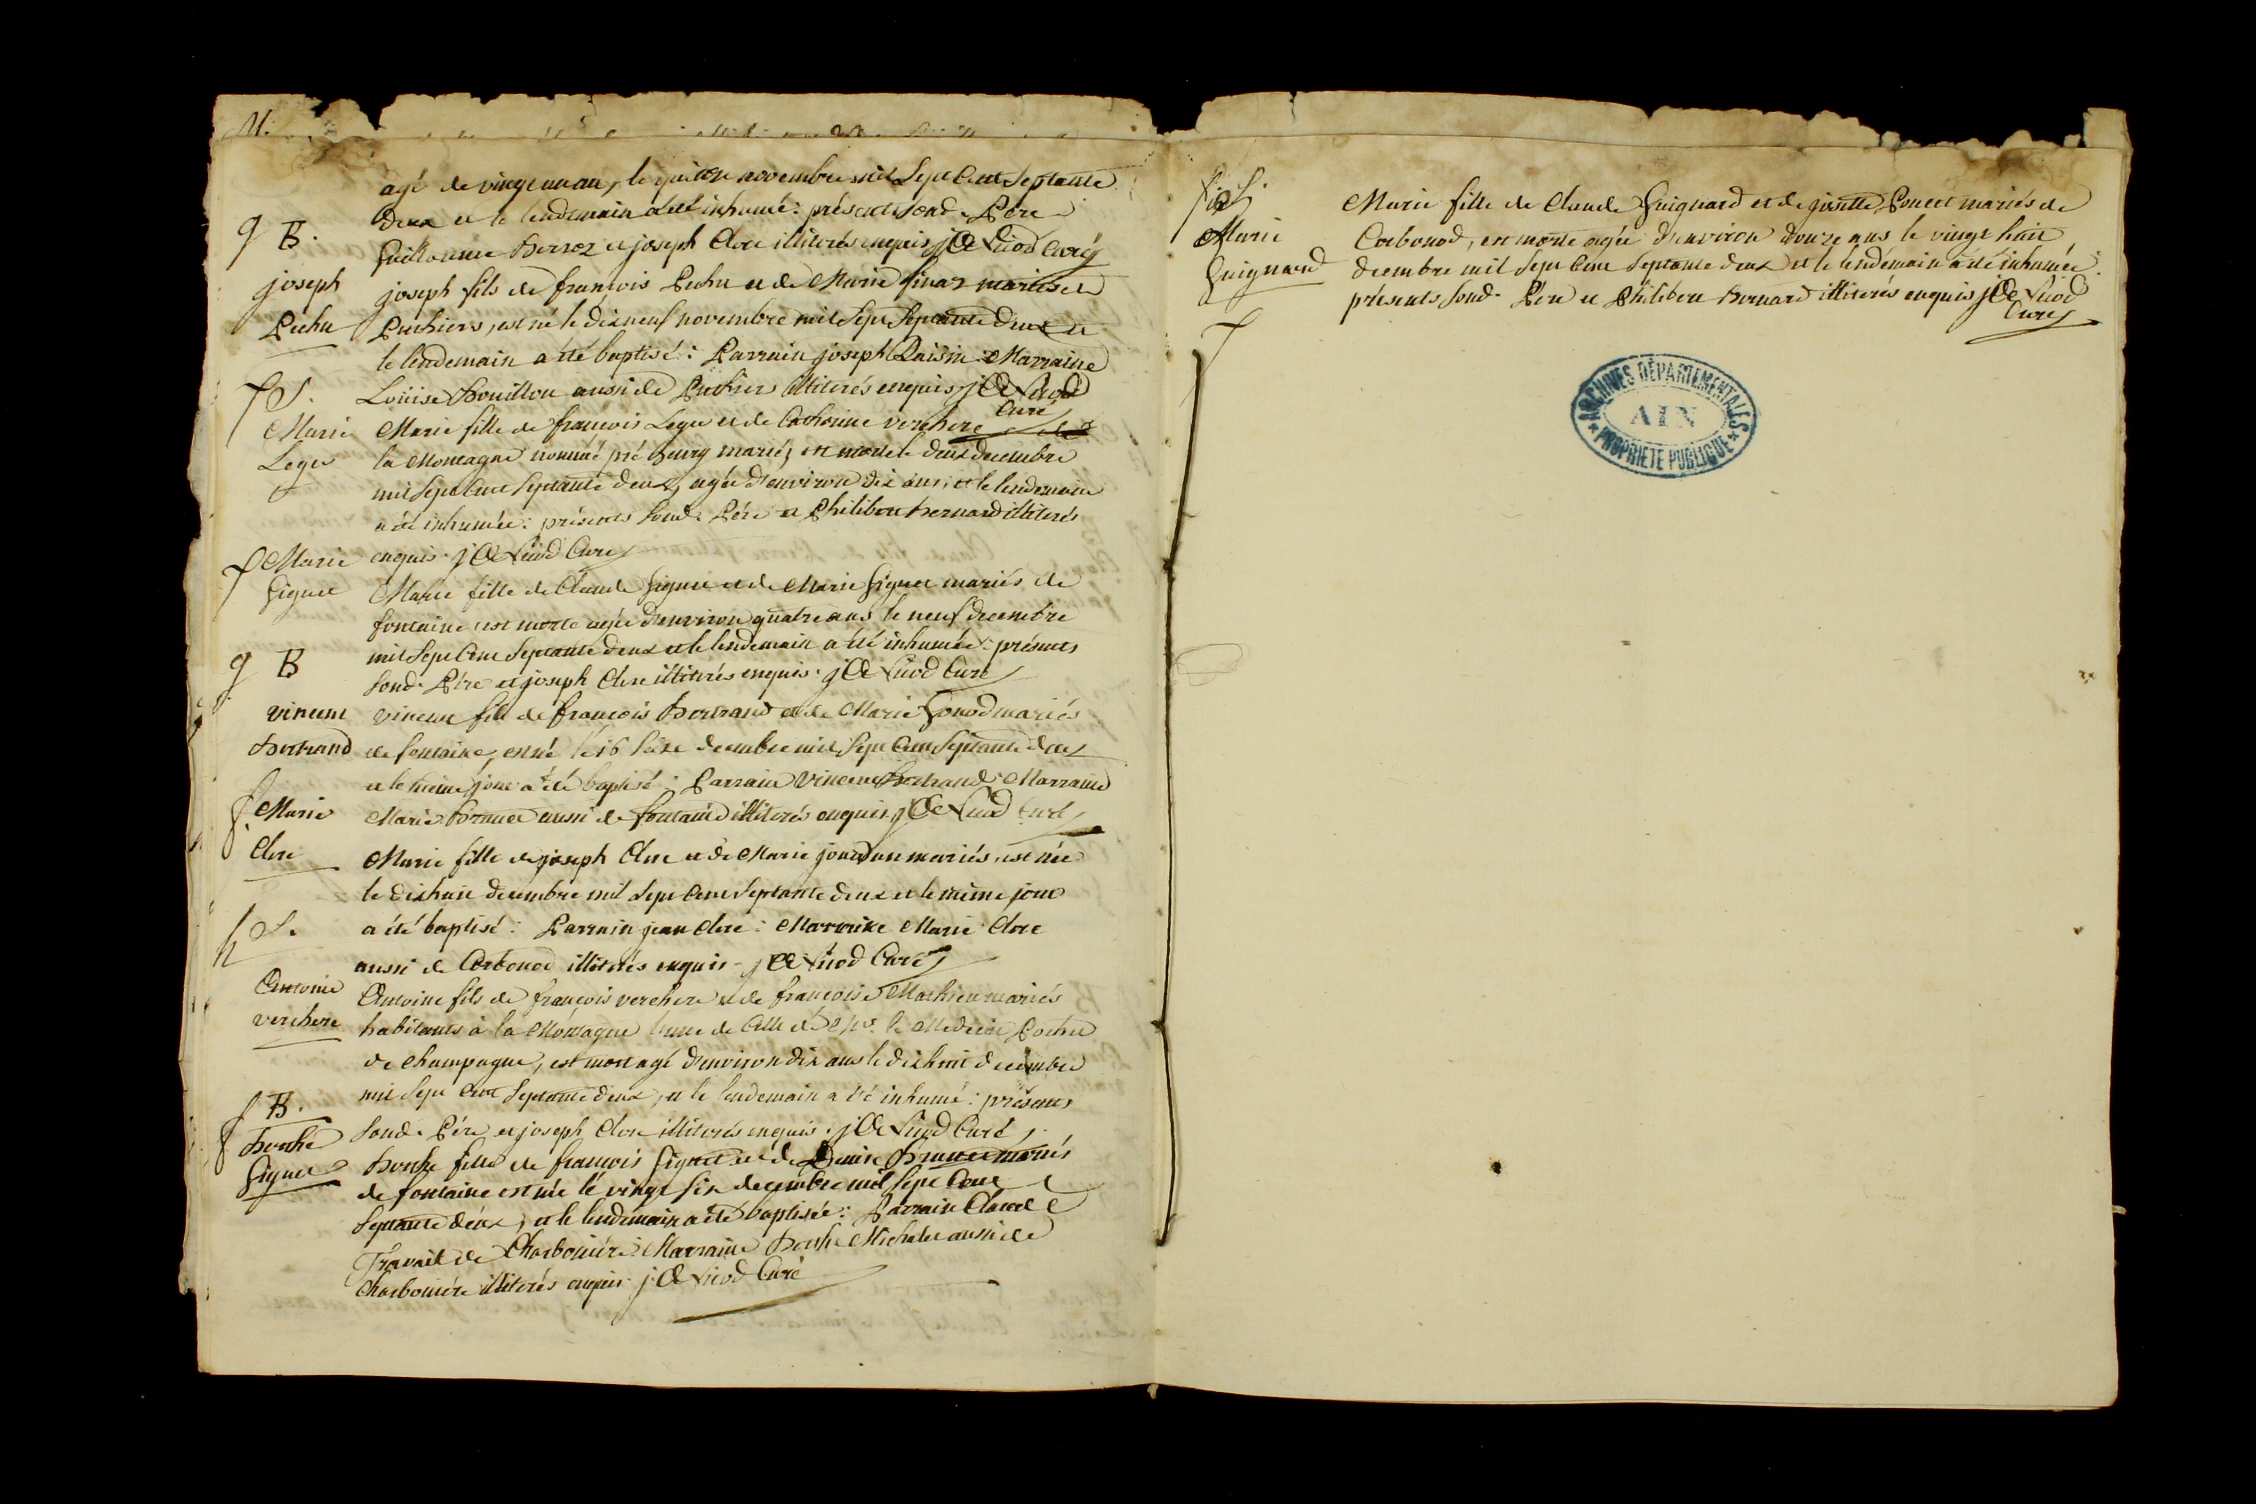 M.
agé de vingt un an, le quinze novembre mil Sept Cent Septante
deux et le lendemain a été inhumé: présents sond. Pére
g B.
Guillaume et joseph Clere illiterés enquis curé
joseph
Pechu
joseph fils de françois Pechu et de Marie mariés de
Puthiers, est né le dixneuf novembre mil Sept Septante Deux et
le lendemain a été baptisé: Parrain joseph Raisin: Marraine
f S.
Loüise Bouillon aussi de Puthiers illiterés enquis
Curé
Marie
Leger
Marie fille de françois Leger et de Catherine verchere de
la Montagne nommé pré mariés est morte le deux decembre
mil Sept Cent Septante deux, agée d'environ dix ans, et le lendemain
a été inhumée: présents sond. Pére et Philibert Bernard illiterés
enquis. Curé
f Marie
Figuet
Marie fille de Claude Figuet et de Marie Figuet mariés de
fontaine est morte agée d'environ quatre ans le neuf decembre
mil Sept Cent Septante deux et le lendemain a été inhumée: présents
sond. Pére et joseph Clere illiterés enquis. Curé
g B
vincent
Bertrand
vincent fils de françois Bertrand et de Marie mariés
de fontaine, est né le 16 seize decembre mil Sept Cent Septante deux
et le même jour a été baptisé: Parrain vincent Bertrand: Marraine
Marie Brunet aussi de fontaine illiterés enquis Curé
f. Marie
Clere
Marie fille de joseph Clere et de Marie jourdan mariés est née
le dixhuit decembre mil Sept Cent Septante deux et le même jour
a été baptisé: Parrain jean Clere: Marraine Marie Clere
aussi de Corbonod illiterés enquis - Curé
S.
Antoine
verchere
Antoine fils de françois verchere et de françoise Mathieu mariés
habitants à la Montagne de Médecin
de Champagne, est mort agé d'environ dix ans le dixhuit decembre
mil Sept Cent Septante deux, et le lendemain a été inhumé: présents
sond. Pére et joseph Clere illiterés enquis. Curé
f B.
Figuet
fille de françois Figuet et de Denise Brunet mariés
de fontaine est née le vingt six decembre mil Sept Cent
Septante deux, et le lendemain a été baptisée: Parrain Claude
Travail de Charboniére: Marraine aussi de
Charboniére illiterés enquis. Curé
S.
Marie
Guignard
Marie fille de Claude Guignard et de josette Poncet mariés de
Corbonod, est morte agée d'environ douze ans le vingt huit
decembre mil Sept Cent Septante deux et le lendemain a été inhumée:
présents sond. Pére et Philibert Bernard illiterés enquis
Curé
ARCHIVES DÉPARTEMENTALES
AIN
PROPRIÉTÉ PUBLIQUE